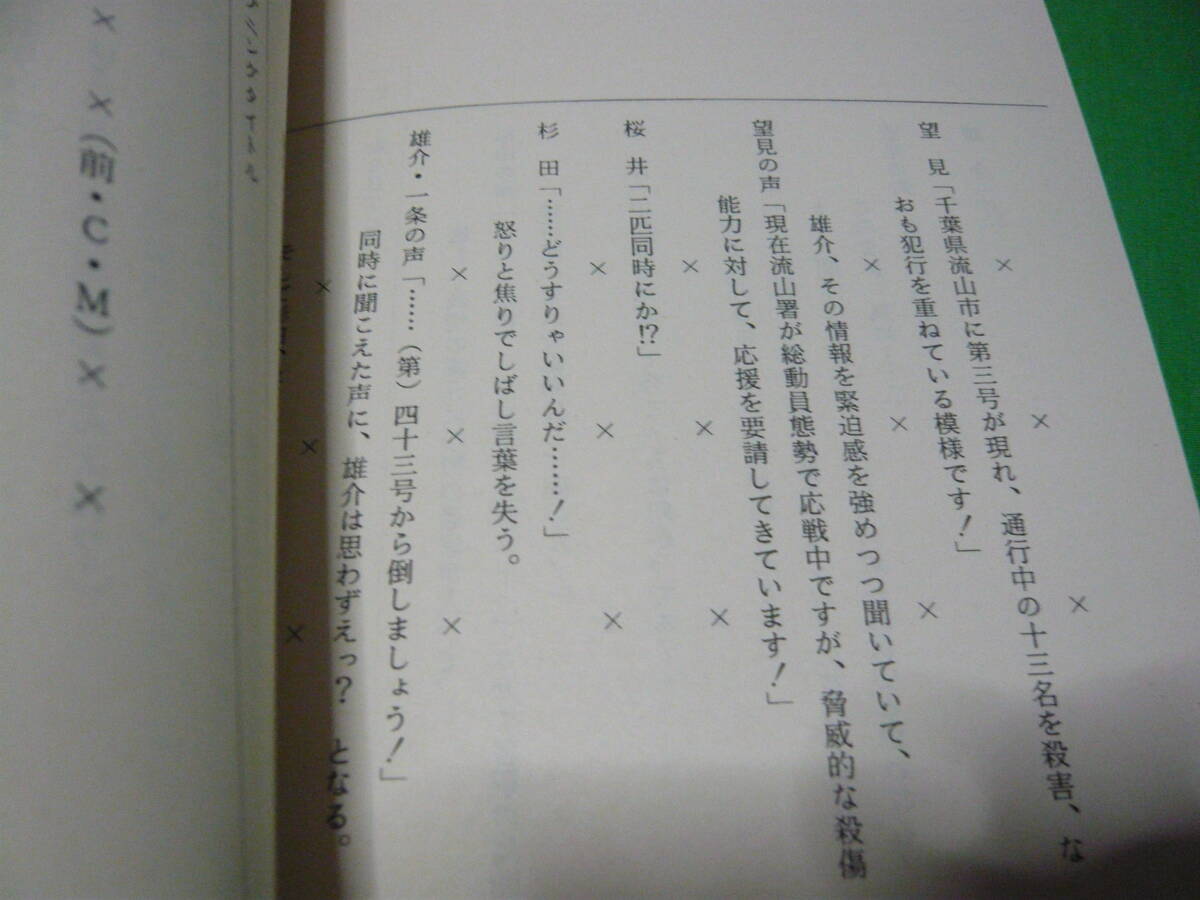 × × ×
望 見「千葉県流山市に第三号が現れ、通行中の十三名を殺害、な
おも犯行を重ねている模様です!」
× × ×
雄介、その情報を緊迫感を強めつつ聞いていて、
望見の声「現在流山署が総動員態勢で応戦中ですが、脅威的な殺傷
能力に対して、応援を要請してきています!」
× × ×
桜 井「二匹同時にか!?」
× × ×
杉 田「……どうすりゃいいんだ……!」
怒りと焦りでしばし言葉を失う。
× × ×
雄介・一条の声「……(第)四十三号から倒しましょう!」
同時に聞こえた声に、雄介は思わずえっ? となる。
× × ×
× ×(前・C・M)× ×